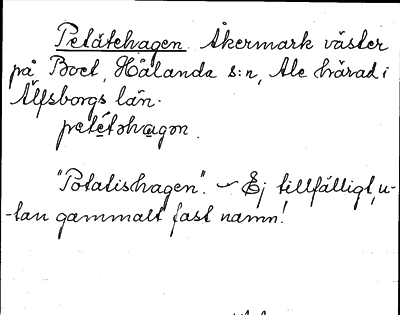 Petåtehagen. Åkermark väster
på Boet, Hålanda s:n, Ale härad i
Älfsborgs län.
petétəhagən.
"Potatishagen". – Ej tillfälligt, u-
-tan gammalt fast namn!